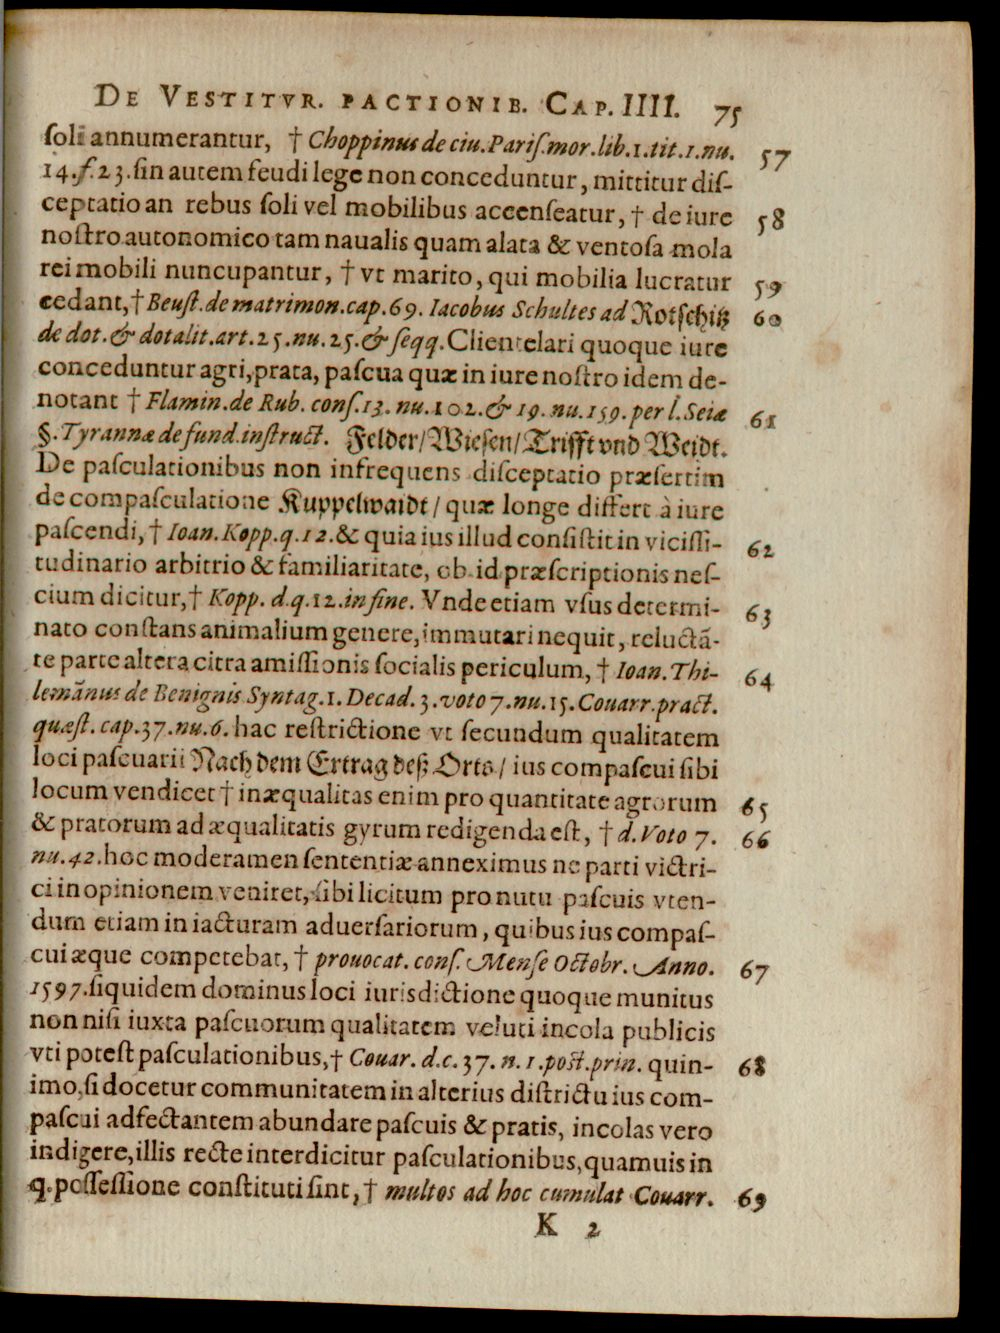 De Vestitvr. pactionib. Cap. IIII. 75
soli annumerantur, † Choppinus de ciu. Pariſ. mor. lib. 1. tit. 1. nu. 57
14. f. 23. ſin autem feudi lege non conceduntur, mittitur diſ-
ceptatio an rebus ſoli vel mobilibus accenſeatur, † de iure 58
noſtro autonomico tam naualis quam alata & ventoſa mola
rei mobili nuncupantur, † vt marito, qui mobilia lucratur 59
cedant, † Beuſt. de matrimon. cap. 69. Iacobus Schultes ad Rotſchitz 60
de dot. & dotalit. art. 25. nu. 25. & ſeqq. Clientelari quoque iure
conceduntur agri, prata, paſcua quæ in iure noſtro idem de-
notant † Flamin. de Rub. conſ. 13. nu. 102. & 19. nu. 159. per l. Seiæ 61
§. Tyrannæ de fund. inſtruct. Felder/ Wieſen/ Trifft vnd Weidt.
De paſculationibus non infrequens diſceptatio præſertim
de compaſculatione Kuppelwaidt/ quæ longe differt à iure
paſcendi, † Ioan. Kopp. q. 12. & quia ius illud conſiſtit in viciſſi- 62
tudinario arbitrio & familiaritate, ob id præſcriptionis neſ-
cium dicitur, † Kopp. d. q. 12. in fine. Vnde etiam vſus determi- 63
nato conſtans animalium genere, immutari nequit, reluctã-
te parte altera citra amiſſionis ſocialis periculum, † Ioan. Thi- 64
lemãnus de Benignis Syntag. 1. Decad. 3. voto 7. nu. 15. Couarr. pract.
quæſt. cap. 37. nu. 6. hac reſtrictione vt ſecundum qualitatem
loci paſcuarii Nach dem Ertrag deß Orts/ ius compaſcui ſibi
locum vendicet † inæqualitas enim pro quantitate agrorum 65
& pratorum ad æqualitatis gyrum redigenda eſt, † d. Voto 7. 66
nu. 42. hoc moderamen ſententiæ anneximus ne parti victri-
ci in opinionem veniret, ſibi licitum pro nutu paſcuis vten-
dum etiam in iacturam aduerſariorum, quibus ius compaſ-
cui æque competebat, † prouocat. conſ. Menſe Octobr. Anno. 67
1597. ſiquidem dominus loci iurisdictione quoque munitus
non niſi iuxta paſcuorum qualitatem veluti incola publicis
vti poteſt paſculationibus, † Couar. d. c. 37. n. 1. poſt. prin. quin- 68
imo, ſi docetur communitatem in alterius diſtrictu ius com-
paſcui adfectantem abundare paſcuis & pratis, incolas vero
indigere, illis recte interdicitur paſculationibus, quamuis in
q. poſſeſſione conſtituti ſint, † multos ad hoc cumulat Couarr. 69
K 2